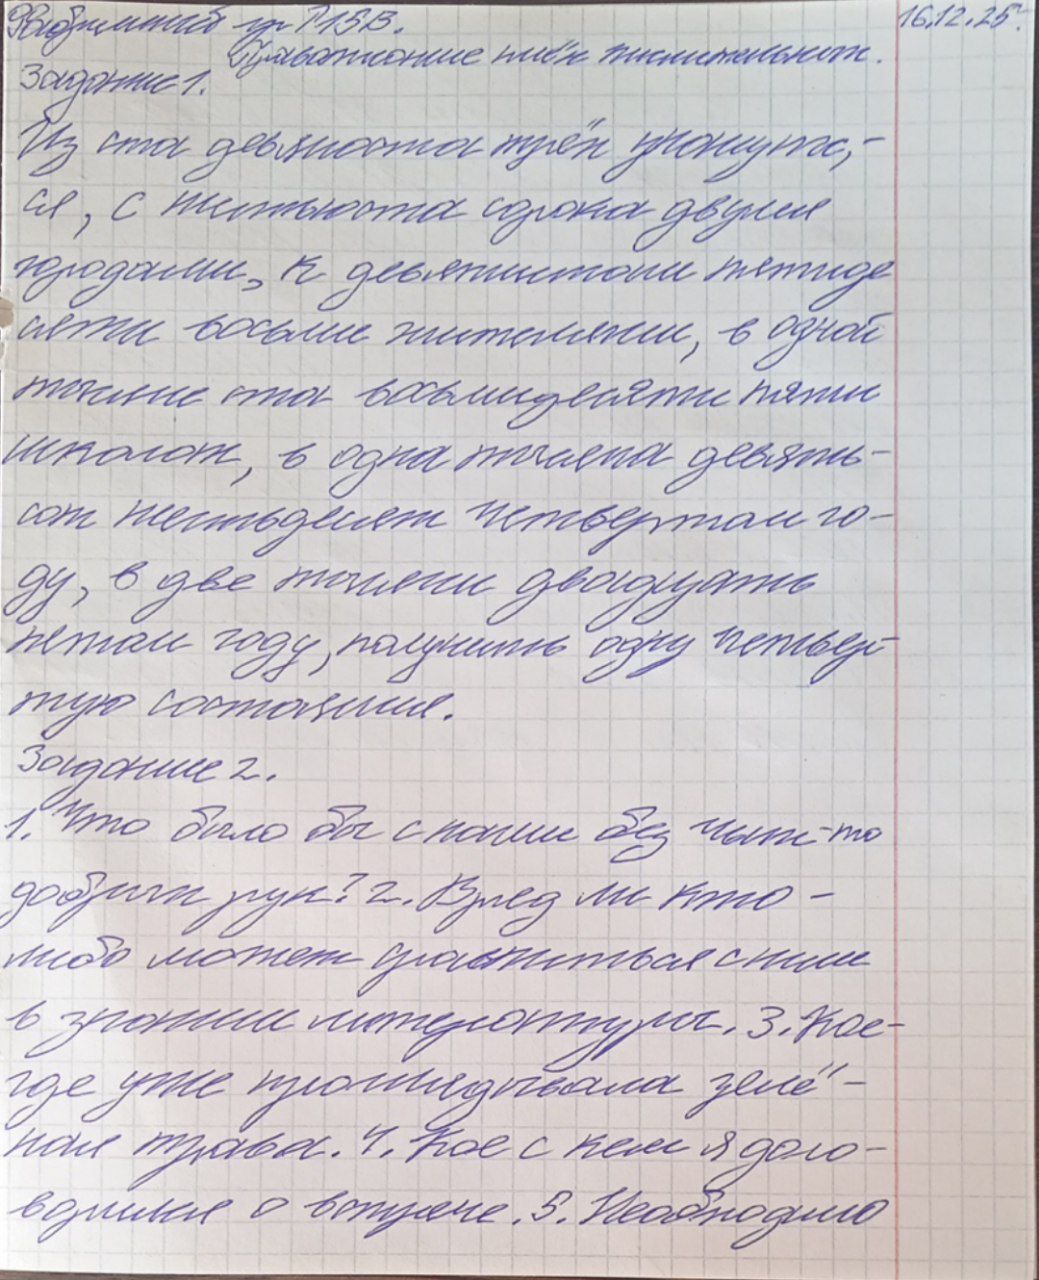 гр Т15В. 16.12.25г.
Правописание имён числительных.
Задание 1.
Из ста девяноста трёх
ся, с шестьюста сорока двумя
городами, к девятистам пятиде
сяти восьми жителями, в одной
тысяче ста восьмидесяти пяти
школах, в одна тысяча девять-
сот шестьдесят четвертом го-
ду, в две тысячи двадцать
пятом году, получить одну четвёр
тую состояния.
Задание 2.
1. Что было бы с нами без чьих-то
добрых рук? 2. Вряд ли кто-
либо может сравниться с ним
в знании литературы. 3. Кое-
где уже проглядывала зелё-
ная трава. 4. Кое с кем я дого-
ворился о встрече. 5. Необходимо